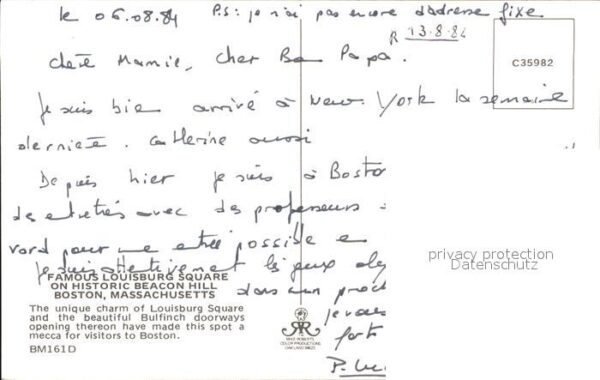 le 06.08.84 P.S: je n'ai pas encore d'adresse fixe
R 13.8.84
Chère Mamie, Cher Bon Papa.
C35982
Je suis bien arrivé à New-York la semaine
dernière. Catherine aussi
Depuis hier je suis à Bosto
des entretiens avec des professeurs
vard pour une entrée possible e
privacy protection
Datenschutz
Je suis attentivement les jeux oly
FAMOUS LOUISBURG SQUARE
ON HISTORIC BEACON HILL
BOSTON, MASSACHUSETTS
dans un proch
The unique charm of Louisburg Square
and the beautiful Bulfinch doorways
opening thereon have made this spot a
mecca for visitors to Boston.
BM161D
MIKE ROBERTS
COLOR PRODUCTIONS
OAKLAND 94623
je vous
fort